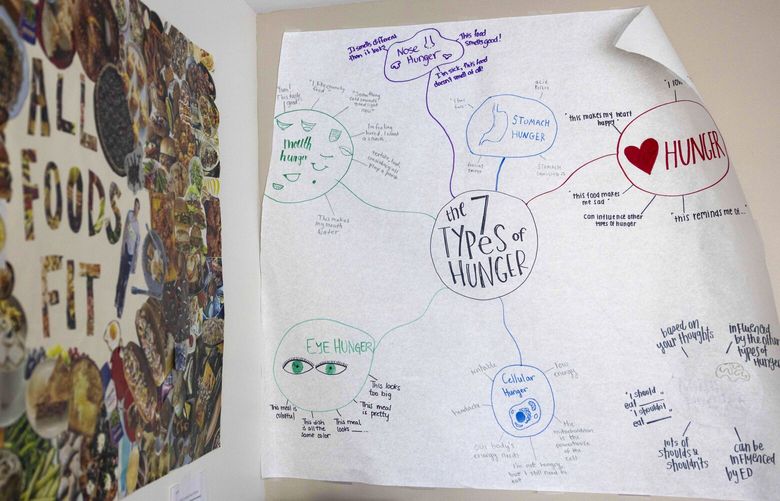 ALL
FOODS
FIT
the 7
TYPES of
HUNGER
Nose
Hunger
It smells different
than it looks?
This food
smells good!
I'm sick, this food
doesn't smell at all!
STOMACH
HUNGER
acid
STOMACH
mouth
hunger
"I like crunchy
food
"Something
cold sounds
good right
now"
I'm feeling
bored, I want
a
texture, taste,
play a part
This makes
my mouth
water
HUNGER
"this makes my heart
happy"
"I lov
"this food makes
me sad"
can influence other
types of hunger
"this reminds me of..."
EYE HUNGER
This meal is
colorful
This dish
is all the
same color
This meal
looks
This meal
is pretty
This looks
too big
Cellular
Hunger
irritable
low
energy
headache
our body's
energy needs
I'm not hungry,
but I still need to
eat
the
mitochondrion
is the
powerhouse of
the cell
based on
your thoughts
influenced
by the other
types of
hunger
"I should
eat
"I shouldn't
eat
lots of
shoulds &
shouldn'ts
can be
influenced
by ED